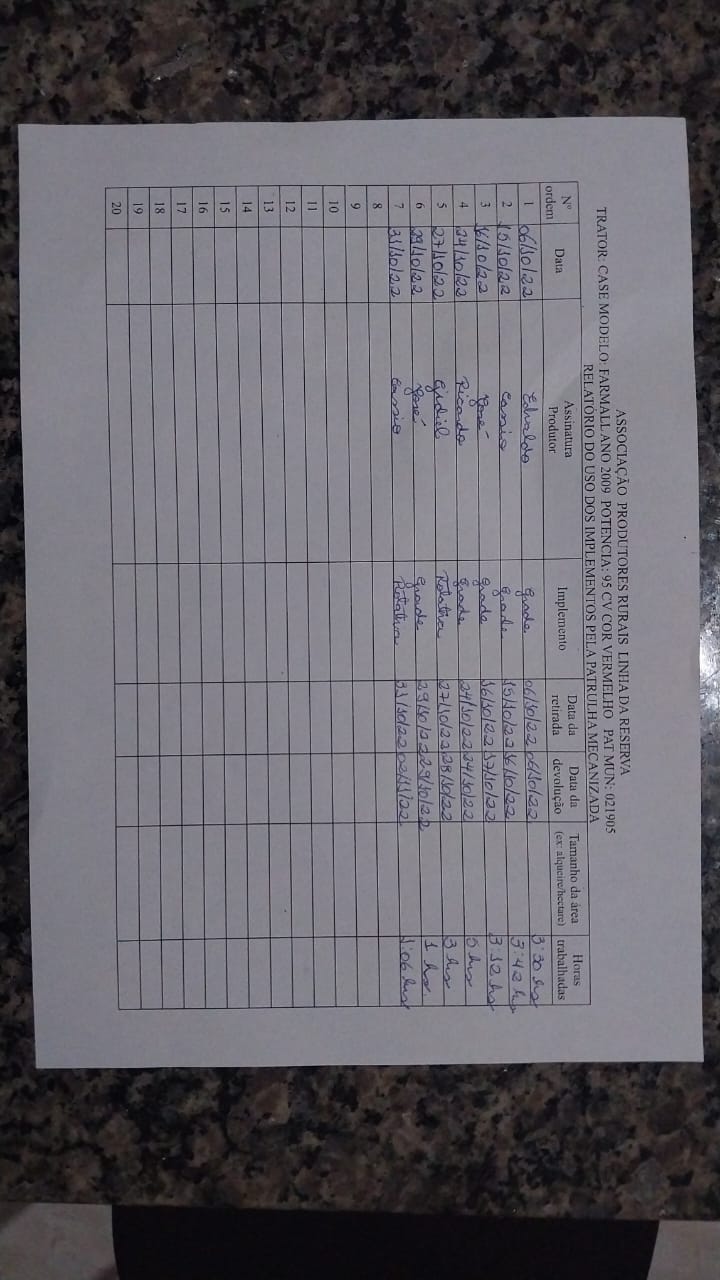 ASSOCIAÇÃO PRODUTORES RURAIS LINHA DA RESERVA
TRATOR: CASE MODELO: FARMALL ANO 2009 POTENCIA: 95 CV COR VERMELHO PAT MUN: 021905
RELATÓRIO DO USO DOS IMPLEMENTOS PELA PATRULHA MECANIZADA
Nº ordem Data Assinatura Produtor Implemento Data da retirada Data da devolução Tamanho da área (ex: alqueire/hectare) Horas trabalhadas
1 06/10/22 Edvaldo grade 06/10/22 06/10/22 3:30 hs
2 15/10/22 Cassio grade 15/10/22 16/10/22 3:42 hs
3 16/10/22 José grade 16/10/22 17/10/22 3:12 hs
4 24/10/22 Ricardo grade 24/10/22 24/10/22 5 hs
5 27/10/22 Rotativa 27/10/22 28/10/22 3 hs
6 29/10/22 José grade 29/10/22 29/10/22 1 hs
7 31/10/22 Cassio Rotativa 31/10/22 02/11/22 1:06 hs
8
9
10
11
12
13
14
15
16
17
18
19
20